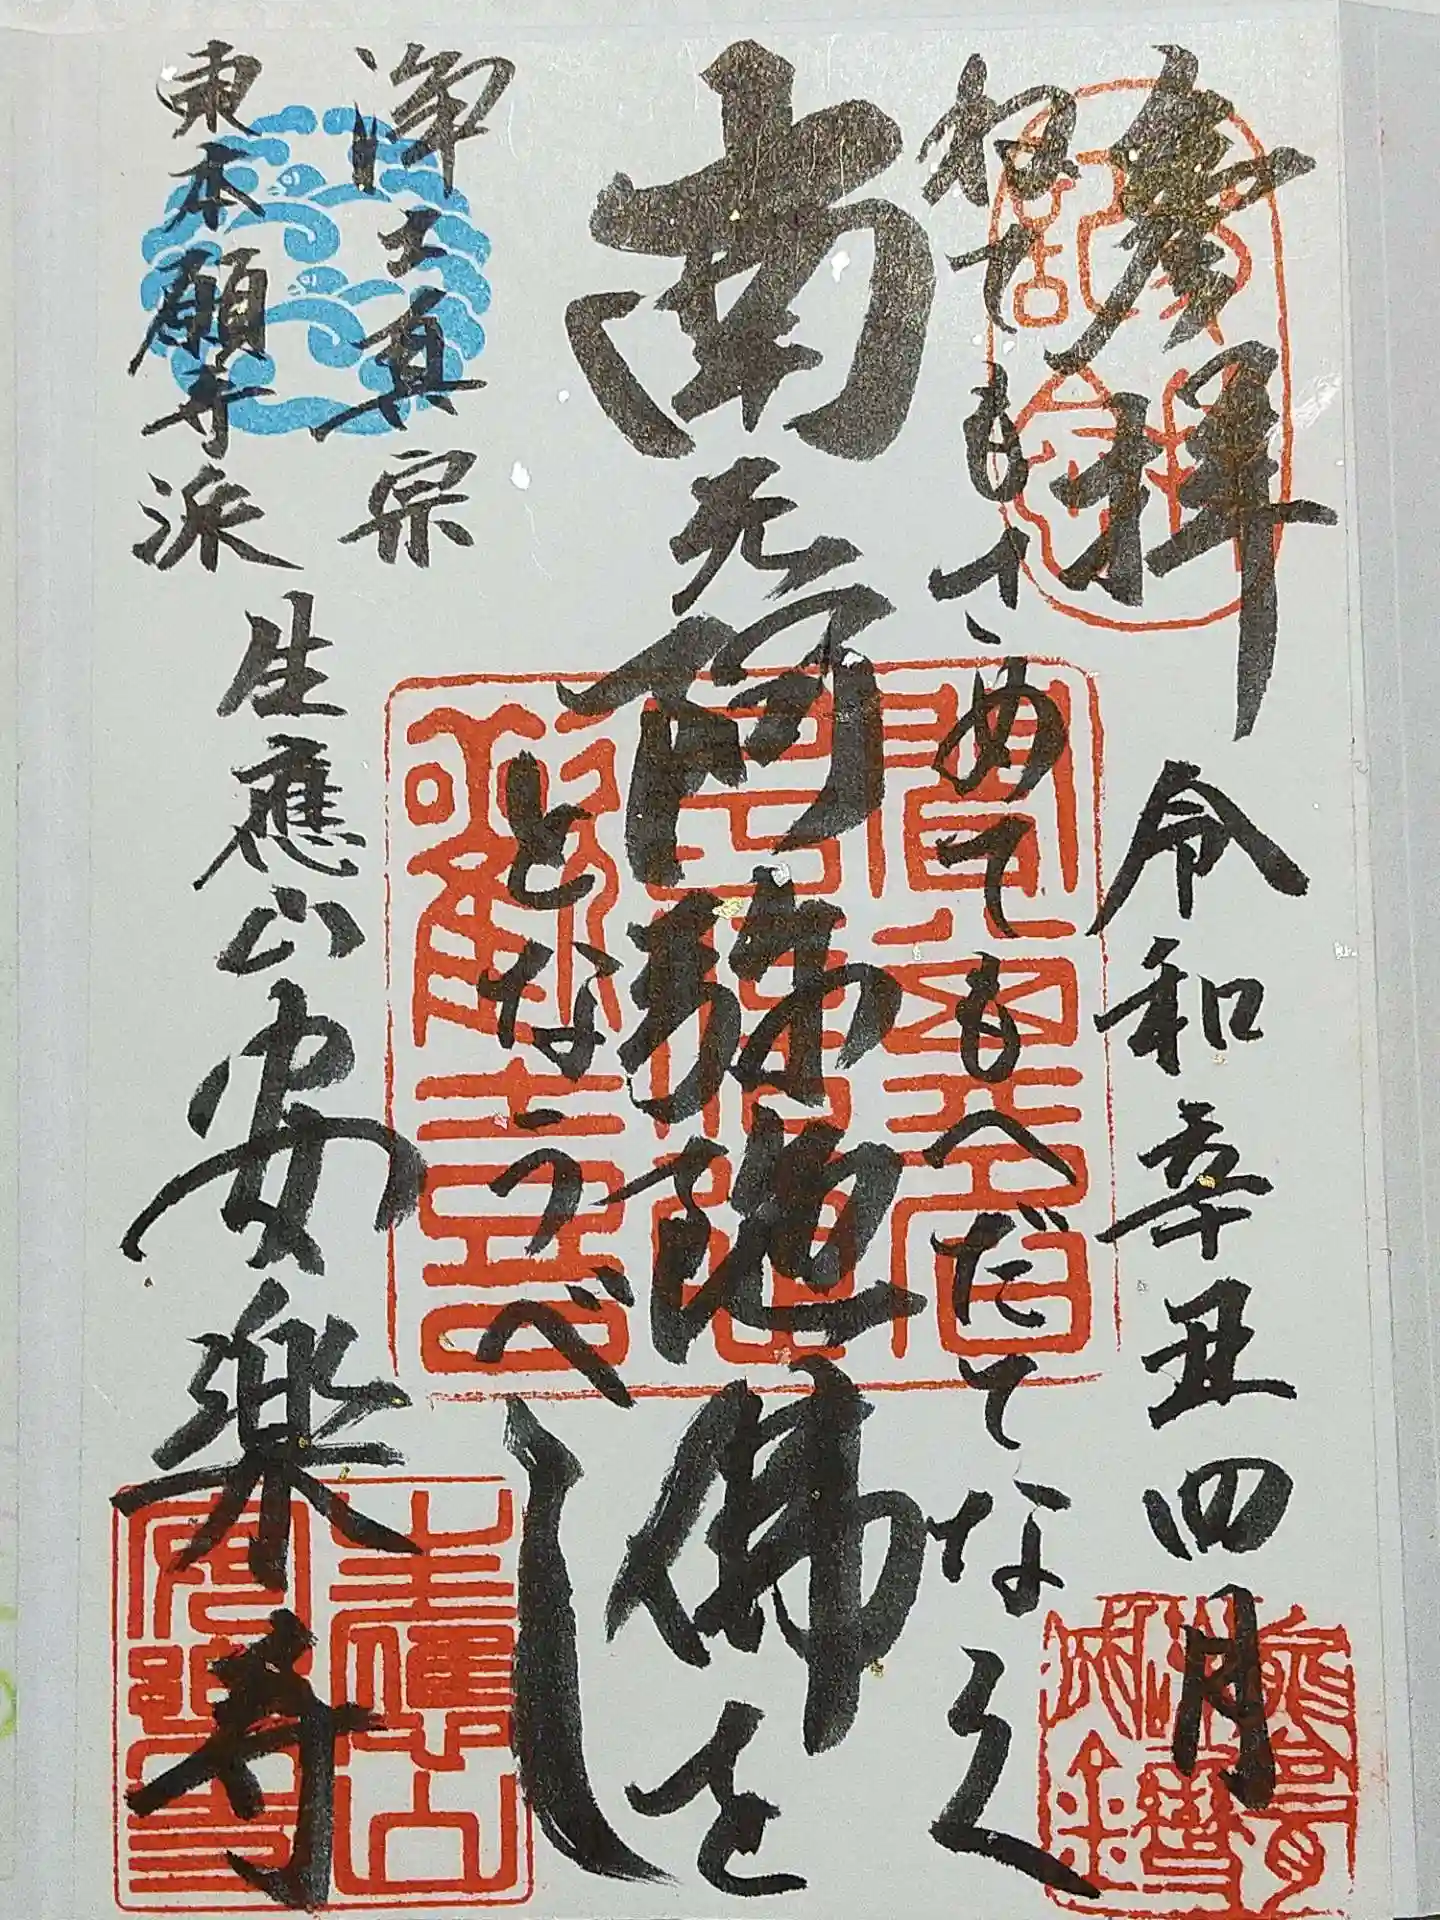 参拝
令和辛丑四月
ねてもさめてもへだてなく
南无阿弥陀佛を
となうべし
浄土真宗
東本願寺派
生應山安楽寺
生應山
安樂寺